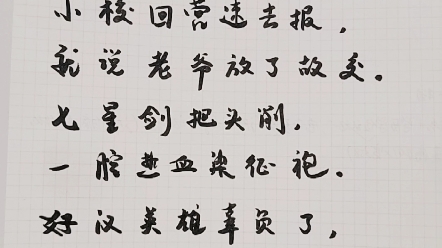 小校回营速去报，
就说老爷放了故交。
七星剑把头削，
一腔热血染征袍。
好汉英雄辜负了，